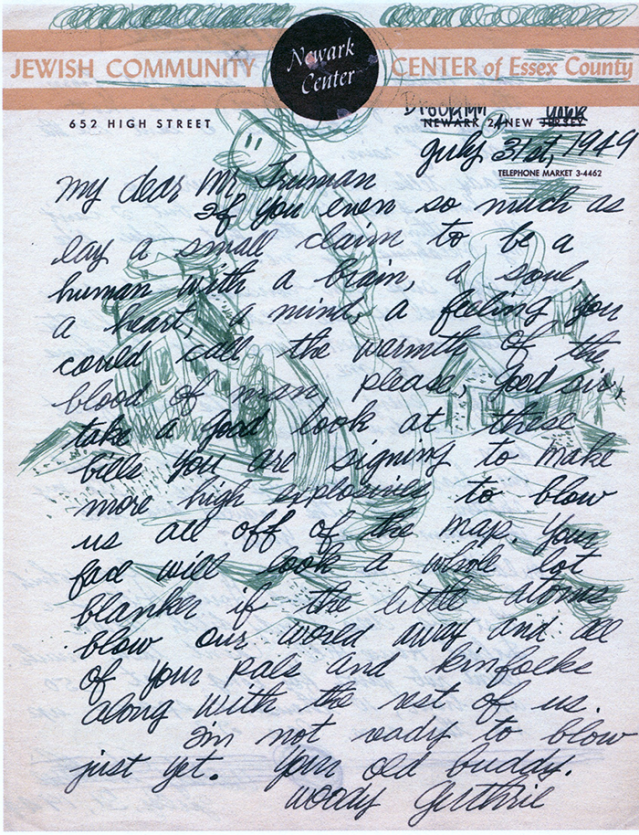 Newark
Center
JEWISH COMMUNITY CENTER of Essex County
652 HIGH STREET
Brooklyn York
NEWARK 2, NEW JERSEY
July 31st, 1949
TELEPHONE MARKET 3-4462
My dear Mr. Truman
If you even so much as
lay a small claim to be a
human with a brain, a soul,
a heart, a mind, a feeling you
could call the warmth of the
blood of man, please, good sir,
take a good look at these
bills you are signing to make
more high explosives to blow
us all off of the map. Your
face will look a whole lot
blanker if the little atoms
blow our world away and all
of your pals and kinfolks
along with the rest of us.
I'm not ready to blow
just yet. Your old buddy.
Woody Guthrie